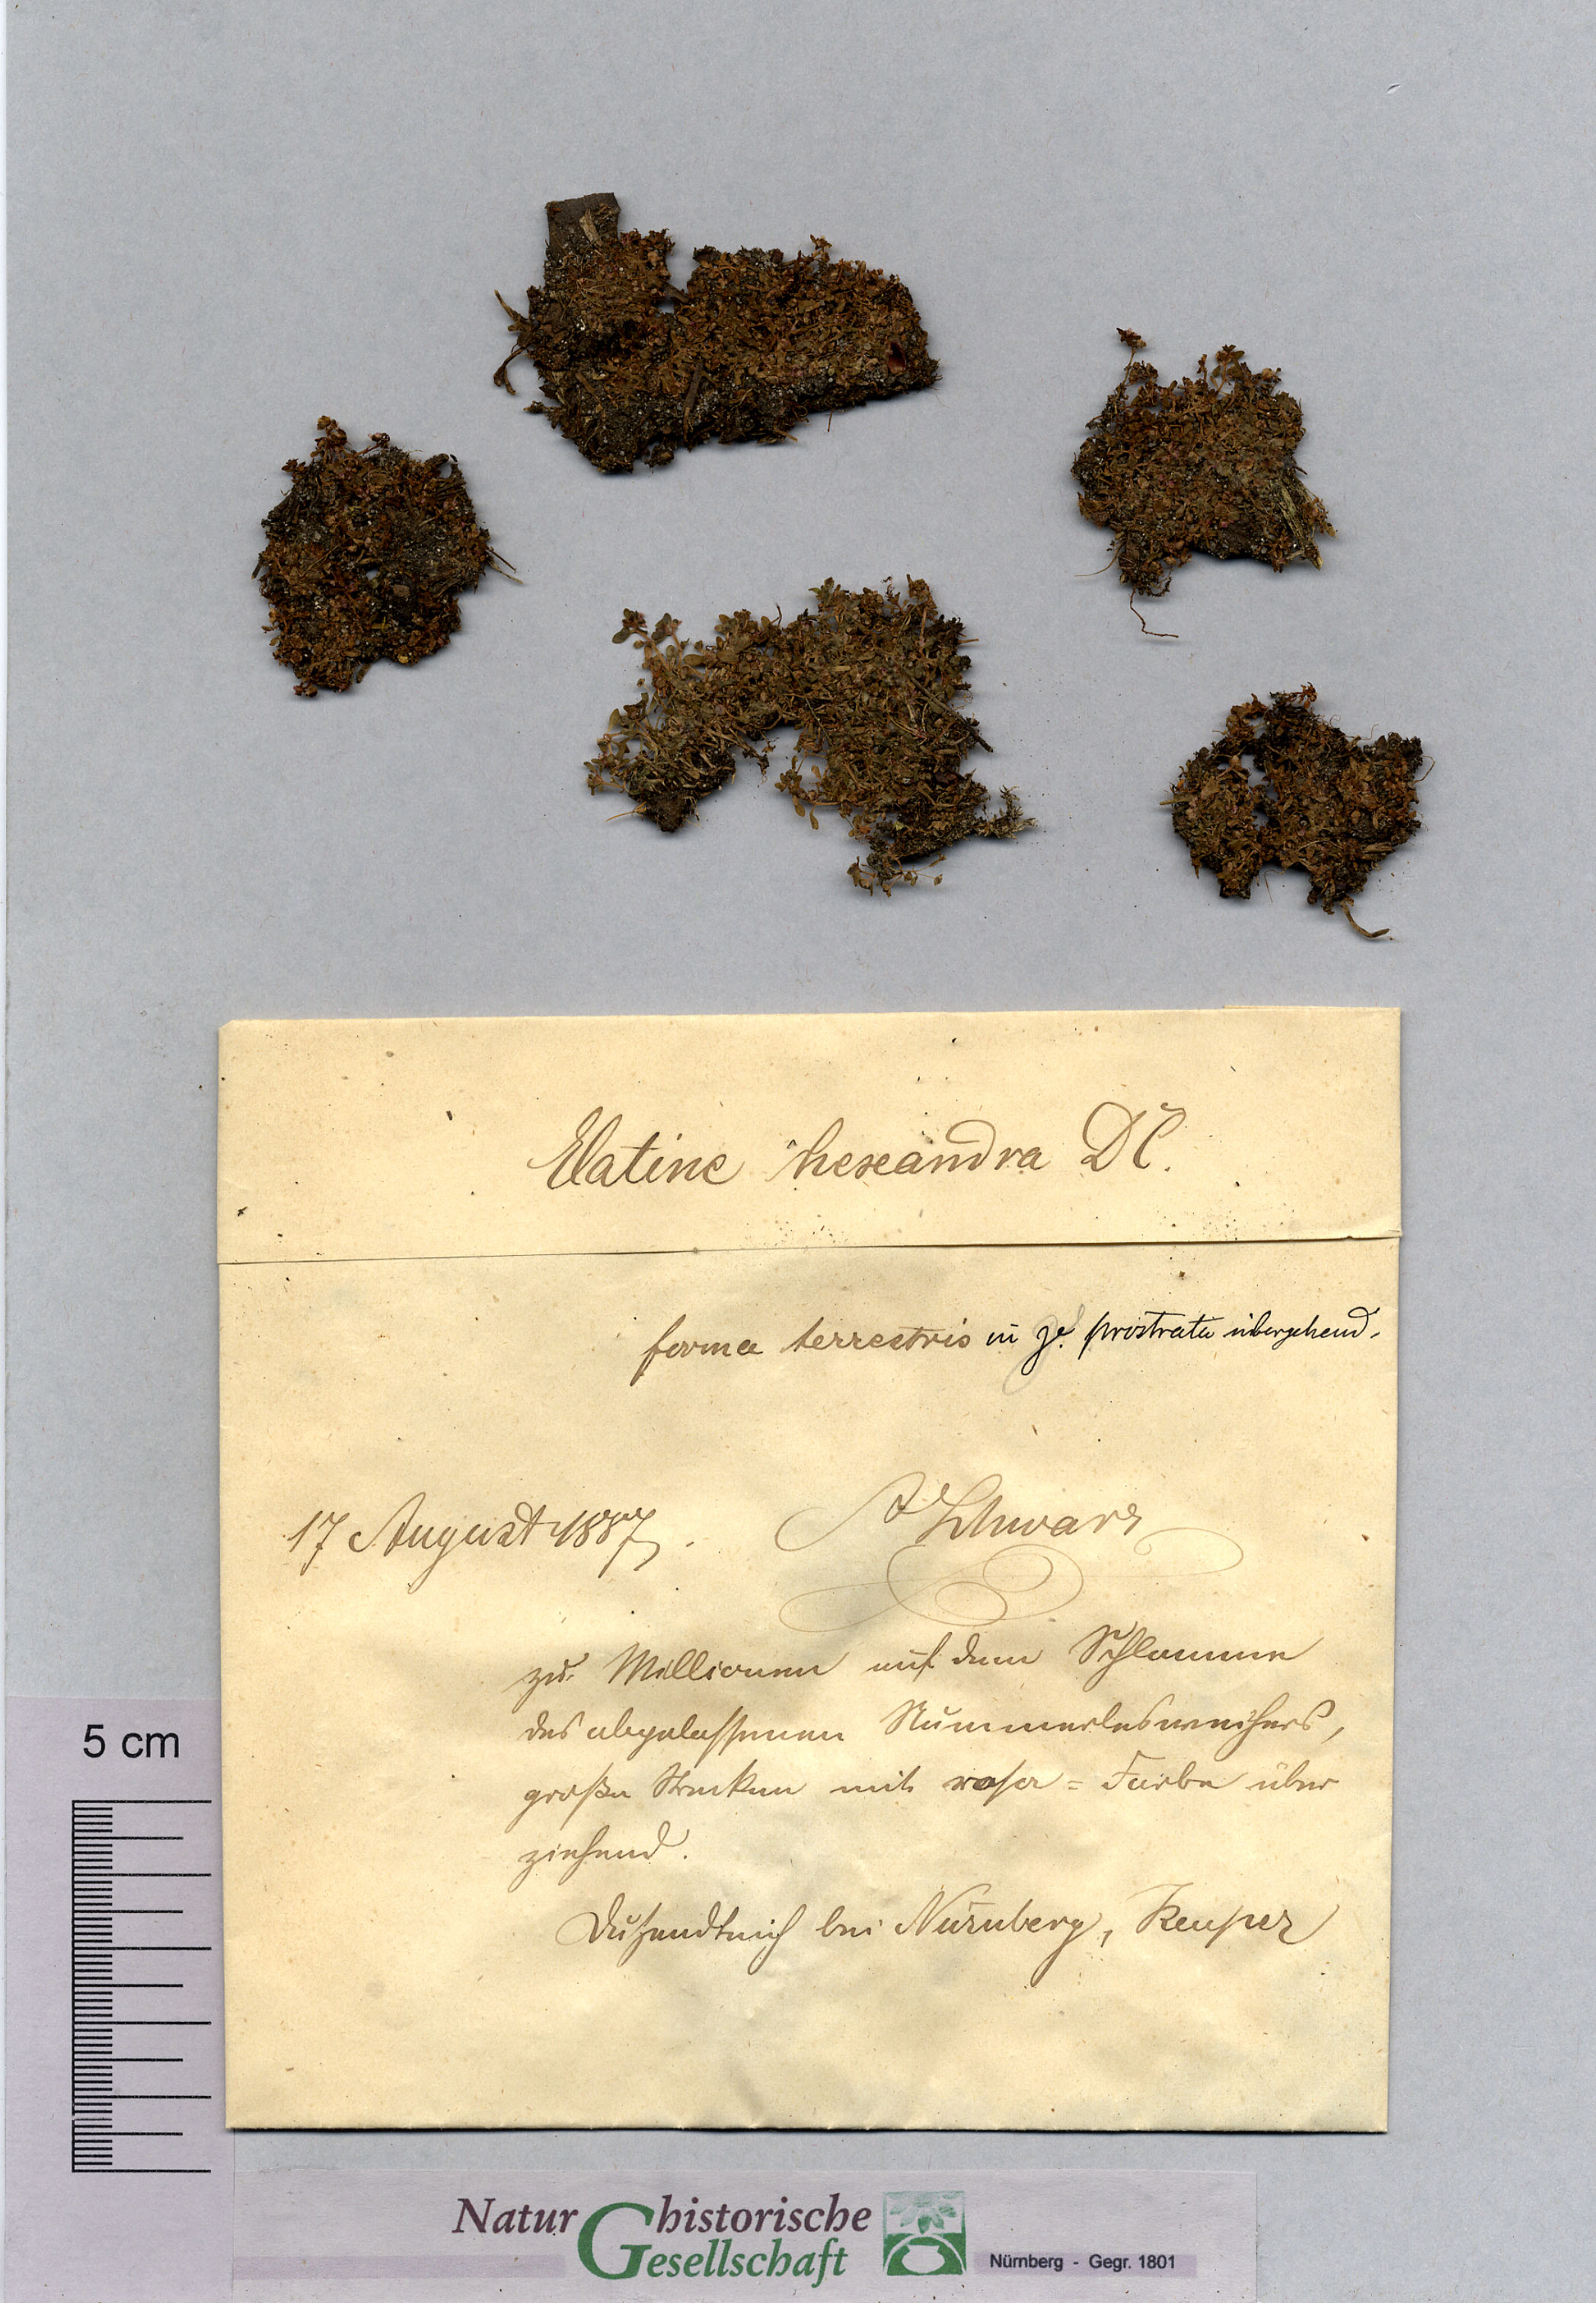 Elatine hexandra DC.
forma terrestris in prostrata übergehend.
17 August 1887.
A Schwarz
zu Millionen auf dem Schlamme
des abgelassenen Nummerlesweihers,
große Strecken mit rosa = Farbe über
ziehend.
Dutzendteich bei Nürnberg, Keuper
5 cm
Naturhistorische
Gesellschaft
Nürnberg - Gegr. 1801